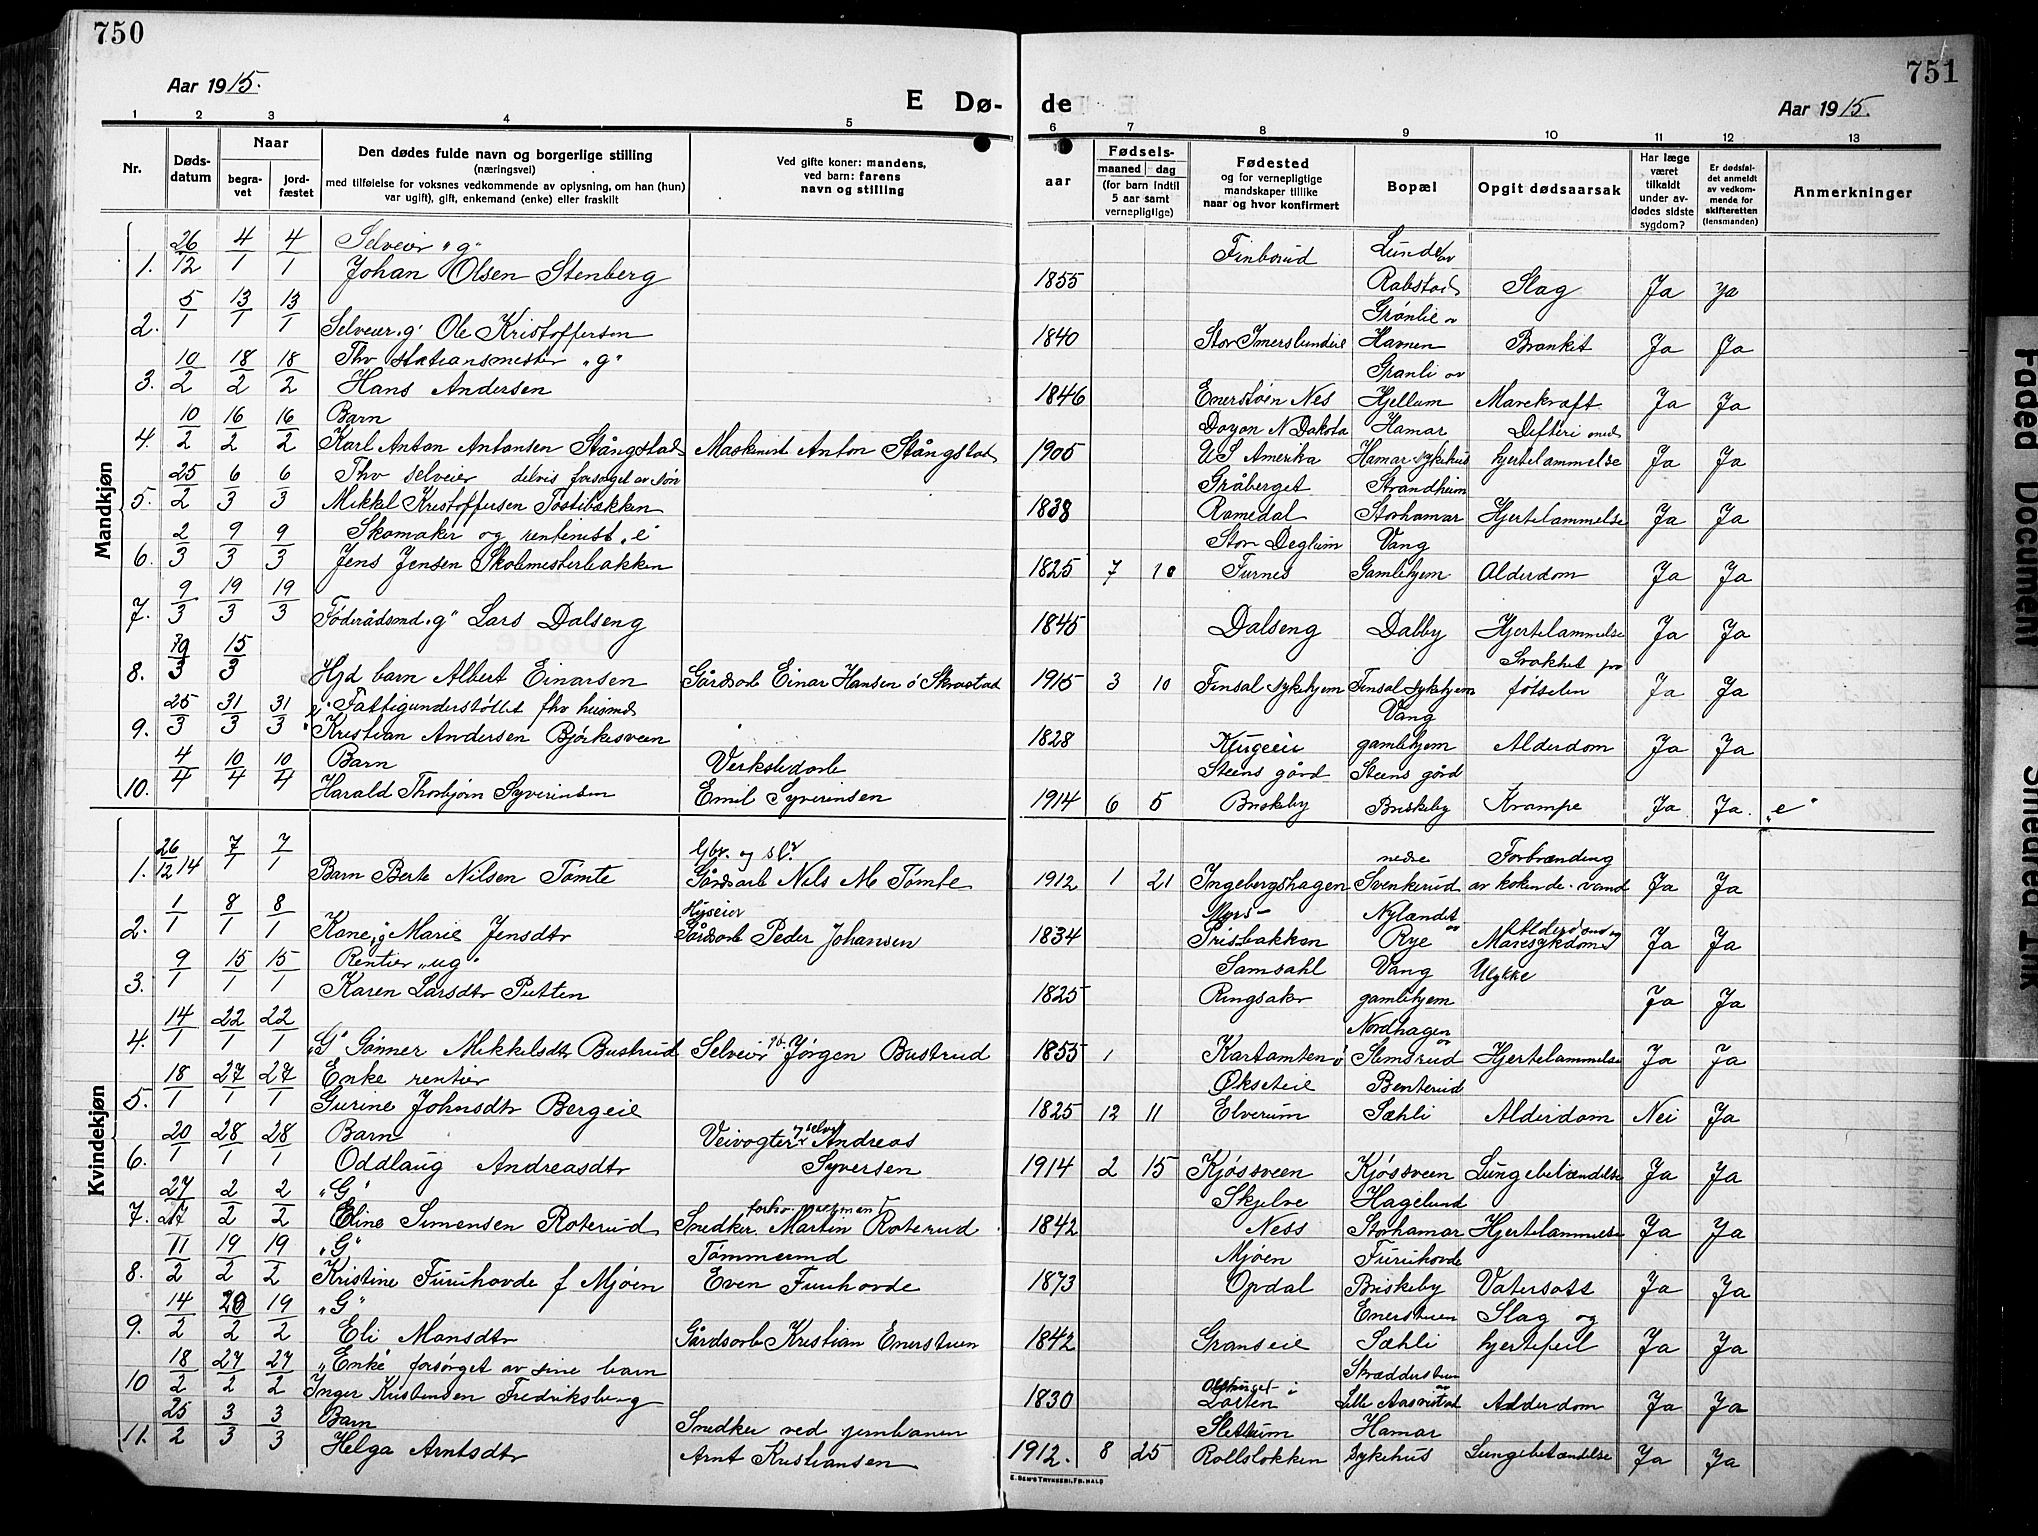 750
Aar 1915.
E Dø-
1 2 3 4 5
Nr.
Døds-
datum
Naar
begra-
vet
jord-
fæstet
Den dødes fulde navn og borgerlige stilling
(næringsvei)
med tilføielse for voksnes vedkommende av oplysning, om han (hun)
var ugift), gift, enkemand (enke) eller fraskilt
Ved gifte koner: mandens,
ved barn: farens
navn og stilling
Mandkjøn
26 4 4 Selveier "g"
1. 12 1 1 Johan Olsen Stenberg
5 13 13
2. 1 1 1 Selveier "g" Ole Kristoffersen
10 18 18 Fhv stationsmester "g"
3. 2 2 2 Hans Andersen
10 16 16 Barn
4. 2 2 2 Karl Anton Antonsen Stångstad Maskinist Anton Stångstad
25 6 6 Fhv selveier delvis forsørget av søn
5. 2 3 3 Mikkel Kristoffersen Tostibakken
2 9 9 Skomaker og rentenist "e"
6. 3 3 3 Jens Jensen Skolmesterbakken
9 19 19
7. 3 3 3 Føderådsmd "g" Lars Dalseng
10 15
8. 3 3 Hjd barn Albert Einarsen Gårdsarb Einar Hansen ö Skrastad
25 31 31 "e" Fattigunderstøttet fhv husmd
9. 3 3 3 Kristian Andersen Bjørkesveen
4 10 10 Barn Verkstedarb
10. 4 4 4 Harald Thorbjørn Syverinsen Emil Syverinsen
Kvindekjøn
26 7 7 Gbr. og slv
1. 12 14 1 1 Barn Berte Nilsen Tømte Gårdsarb Nils M Tømte
1 8 8 Hyseier
2. 1 1 1 Kone "g" Marie Jensdtr Gårdsarb Peder Johansen
9 15 15 Rentier "ug"
3. 1 1 1 Karen Larsdtr Putten
14 22 22
4. 1 1 1 "G" Gunner Mikkelsdtr Bustrud Selveier gb. Jørgen Bustrud
18 27 27 Enke rentier
5. 1 1 1 Gurine Johnsdtr Bergeie
20 28 28 Barn Veivogter og selv Andreas
6. 1 1 1 Oddlaug Andreasdtr Syversen
27 2 2 "G"
7. 2 2 Eline Simensen Roterud Snedker Martin Roterud
11 19 19 "G" Tømmermd
8. 2 2 2 Kristine Furuhovde f Mjøen Even Furuhovde
14 20 19 "G"
9. 2 2 2 Eli Monsdtr Gårdsarb Kristian Enerstuen
18 27 27 "Enke" forsørget av sine barn
10 2 2 2 Inger Kristensen Fredriksberg
25 3 3 Barn Snedker ved jernbanen
11. 2 3 3 Helga Arntsdtr Arnt Kristiansen
751
de
Aar 1915.
6 7 8 9 10 11 12 13
aar
Fødsels-
maaned dag
(for barn indtil
5 aar samt
vernepligtige)
Fødested
og for vernepligtige
mandskaper tillike
naar og hvor konfirmert
Bopæl
Opgit dødsaarsak
Har læge
været
tilkaldt
under av-
dødes sidste
sygdom?
Er dødsfal-
det anmeldt
av vedkom-
mende for
skifteretten
(lensmanden)
Anmerkninger
Finborud Lunde av
1855 Rabstad Slag Ja Ja
Grønlie av
1840 Stor Imerslundeie Havnen Bronkit Ja Ja
Granli av
1846 Enerstøen Nes Hjellum Marekræft Ja Ja
Doyon N Dakota Hamar Difteri med
1905 US Amerika Hamar sykehus hjertelammelse Ja Ja
Gråberget Strandheim
1838 Romedal Storhamar Hjertelammelse Ja Ja
Stor Deglum Vang
1825 7 10 Furnes Gamlehjem Alderdom Ja Ja
1845 Dalseng Dalby Hjertelammelse Ja Ja
Svakhet fra
1915 3 10 Finsal sykehjem Finsal sykehjem føtselen Ja Ja
Vang
1828 Klugeeie gamlehjem Alderdom Ja Ja
Steens gård Steens gård
1914 6 5 Briskeby Briskeby Krampe Ja Ja. "e"
nedre Forbrænding
1912 1 21 Ingebergshagen Svenkerud av kokende vand Ja Ja
Nylændet av Alderdom og
1834 Prisbakken Rye Mavesykdom Ja Ja
Samsahl Vang Ulykke
1825 Ringsaker gamlehjem Ja Ja
Nordhagen av
1855 1 Kartomten ö Slemsrud Hjertelammelse Ja Ja
Økseteie Benterud
1825 12 11 Elverum Sæhli Alderdom Nei Ja
1914 2 15 Kjøssveen Kjøssveen Lungebetændelse Ja Ja
Skjelve Hagelund
1842 Ness Storhamar Hjertelammelse Ja Ja
Mjøen Furuhovde
1873 Opdal Briskeby Vatersott Ja Ja
Enerstuen Slag og
1842 Granseie Sæhli hjertefeil Ja Ja
Skræddersteen
1830 i Løiten Lille Aasvestad Alderdom Ja Ja
Slettum Hamar
1912. 8 25 Rollsløkken sykehus Lungebetændelse Ja Ja
E. SEM'S TRYKKERI, FR.HALD
Faded Document
Smeared Ink